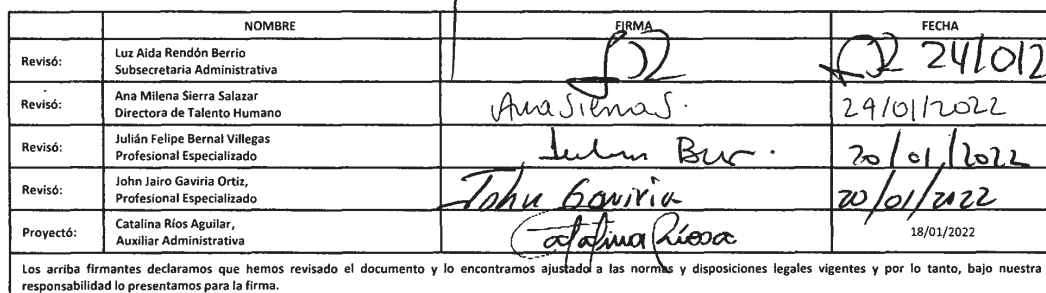 NOMBRE FIRMA FECHA
Revisó: Luz Aida Rendón Berrio
Subsecretaria Administrativa
24/012
Revisó: Ana Milena Sierra Salazar
Directora de Talento Humano
Ana Sierra S. 24/01/2022
Revisó: Julián Felipe Bernal Villegas
Profesional Especializado
Julian Ber. 20/01/2022
Revisó: John Jairo Gaviria Ortiz,
Profesional Especializado
John Gaviria 20/01/2022
Proyectó: Catalina Ríos Aguilar,
Auxiliar Administrativa
Catalina Ríos 18/01/2022
Los arriba firmantes declaramos que hemos revisado el documento y lo encontramos ajustado a las normas y disposiciones legales vigentes y por lo tanto, bajo nuestra
responsabilidad lo presentamos para la firma.